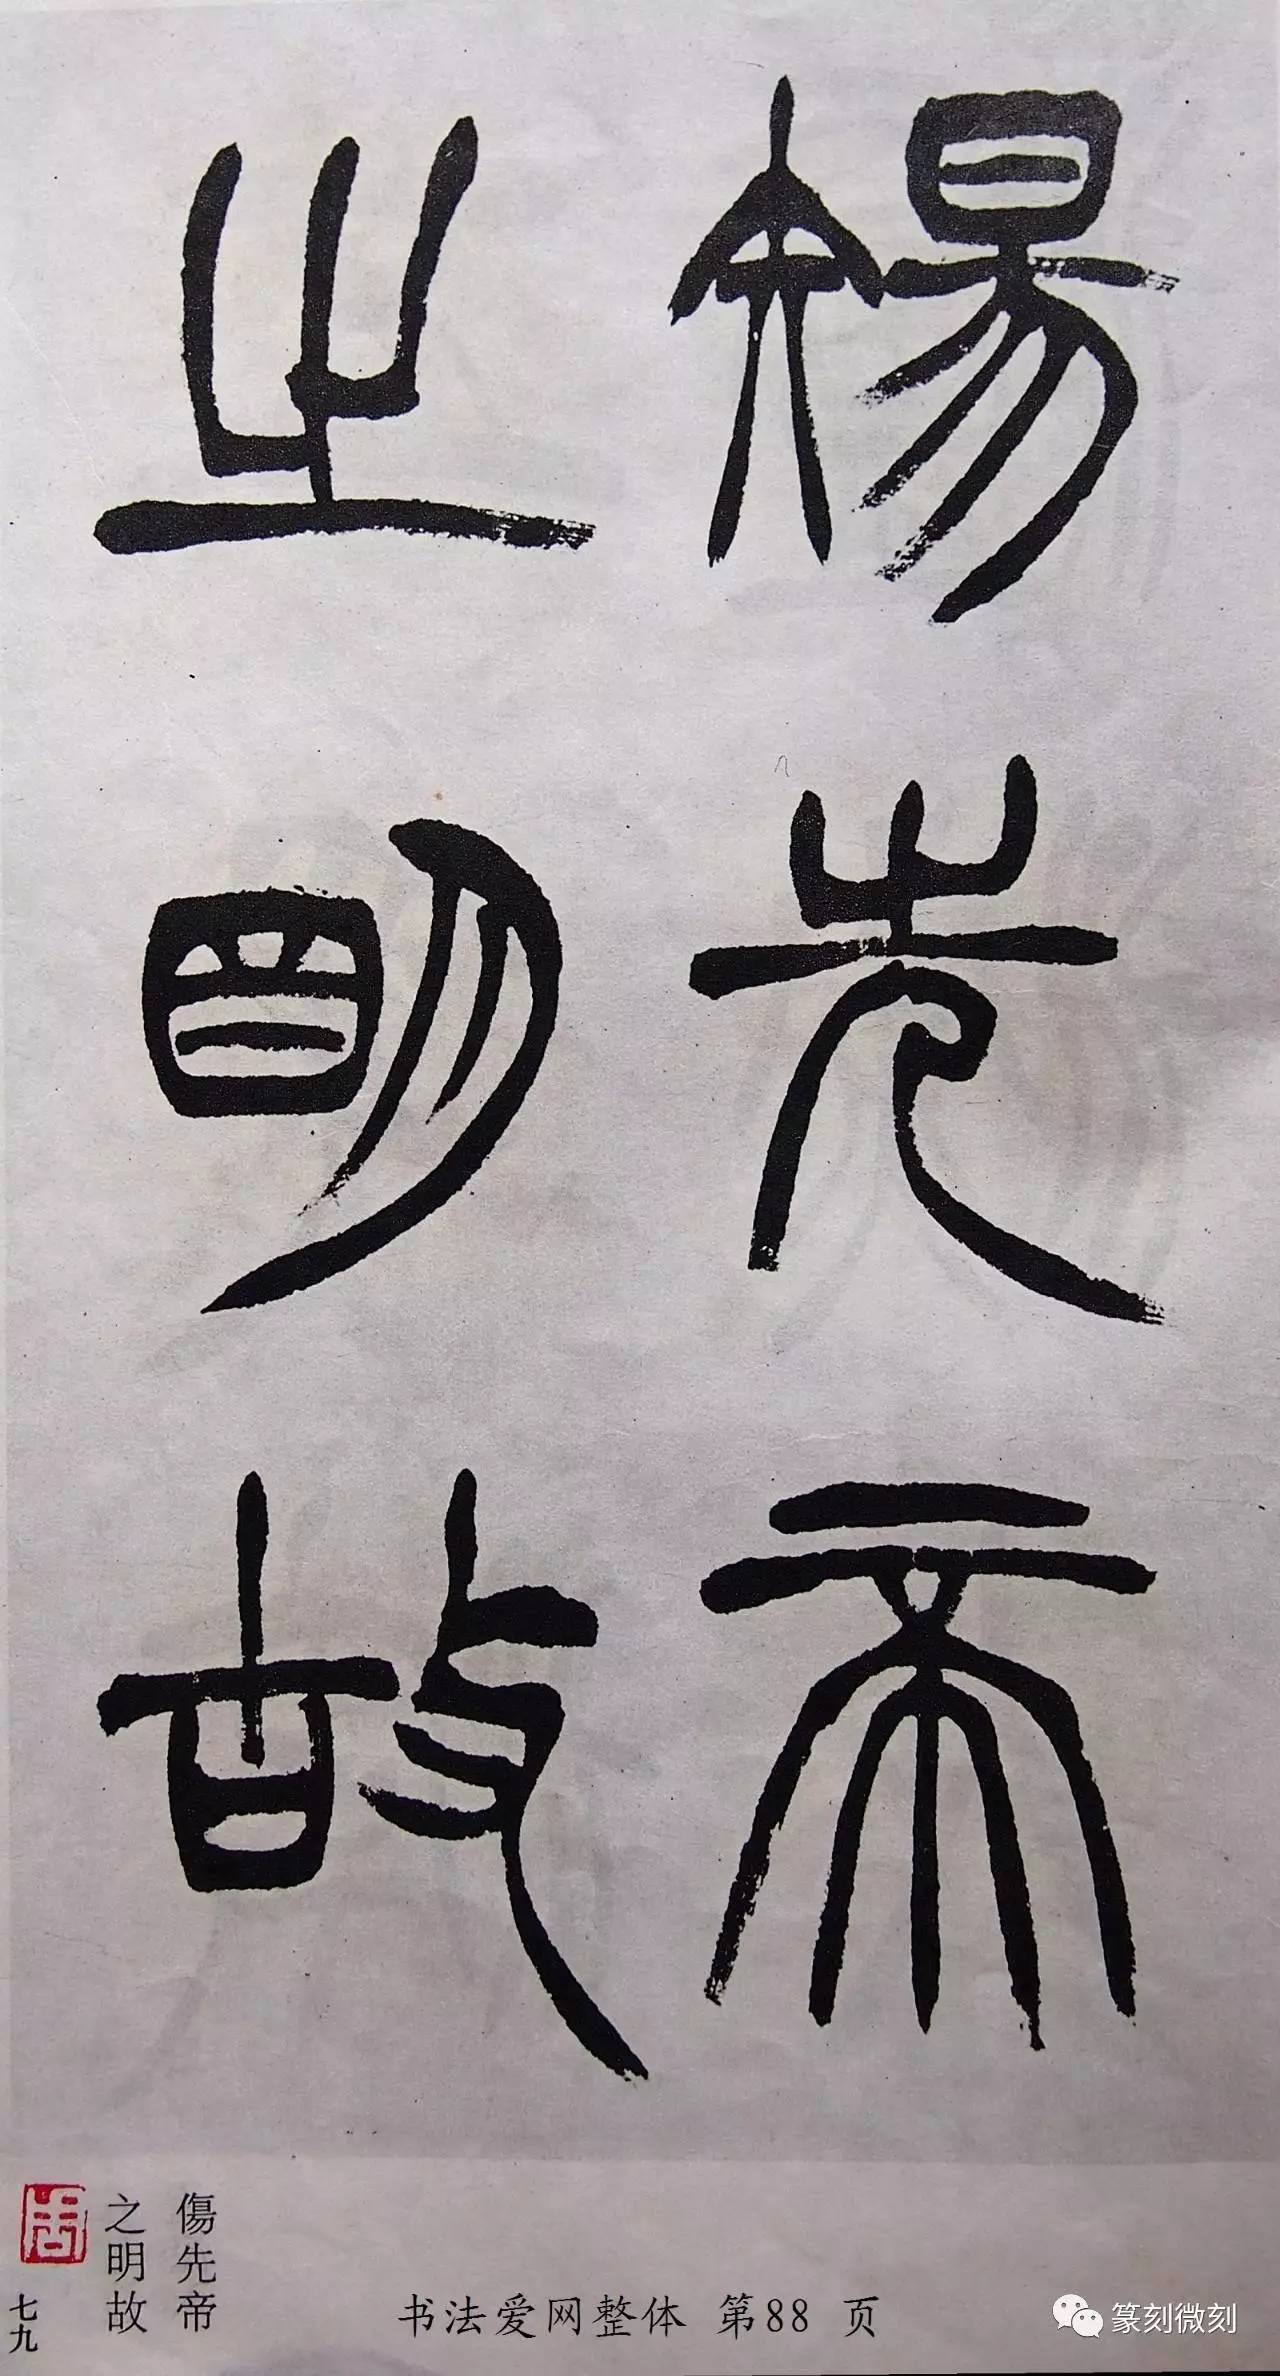 傷先帝
之明故
傷先帝
之明故
七九
书法爱网整体 第88 页
篆刻微刻